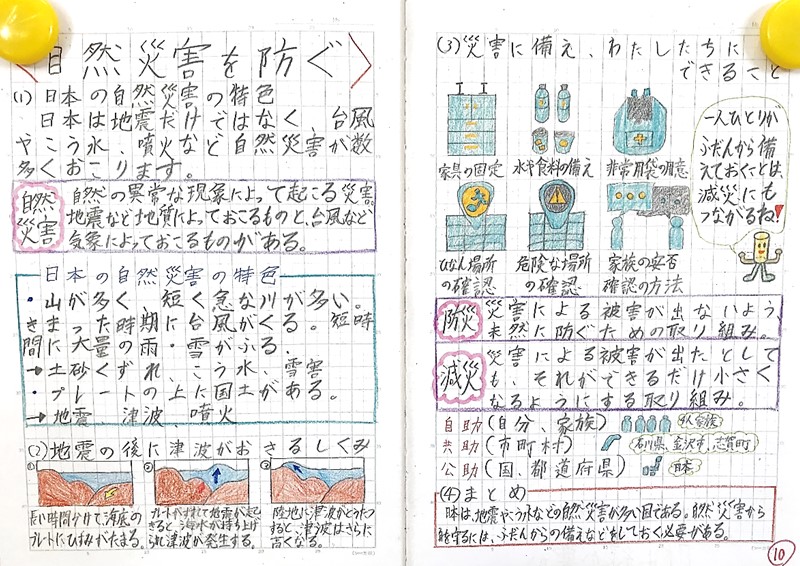 〈自然災害を防ぐ〉
(1) 日本の自然災害の特色
日本は地震だけではなく、台風
やこう水、噴火など自然災害が数
多くおこります。
自然
災害
自然の異常な現象によって起こる災害。
地震など地質によっておこるものと、台風など
気象によっておこるものがある。
日本の自然災害の特色
・山が多く、短く急な川が多い。
きまった時期に台風がくる。短時
間に大量の雨・雪がふる、
→土砂くずれ、こう水、雪害
・プレートの上に国土がある。
→地震 津波、噴火
(2)地震の後に津波がおきるしくみ
①
長い時間かけて海底の
プレートにひずみがたまる。
②
プレートがずれて地震が起
きると海水が持ち上げ
られ津波が発生する。
陸地に津波がぶつかり
すると、津波はさらに
高くなる。
(3)災害に備え、わたしたちに
できること
家具の固定
水や食料の備え
非常用袋の用意
ひなん場所
の確認
危険な場所
の確認
家族の安否
確認の方法
一人ひとりが
ふだんから備
えておくことは、
減災にも
つながるね!
防災
災害による被害が出ないよう、
未然に防ぐための取り組み。
減災
災害による被害が出たとして
も、それができるだけ小さく
なるようにする取り組み。
自助(自分、家族)
4人家族
共助(市町村)
石川県、金沢市、志賀町
公助(国、都道府県)
日本
(4)まとめ
日本は、地震やこう水などの自然災害が多い国である。自然災害から
身を守るには、ふだんからの備えなどをしておく必要がある。
10